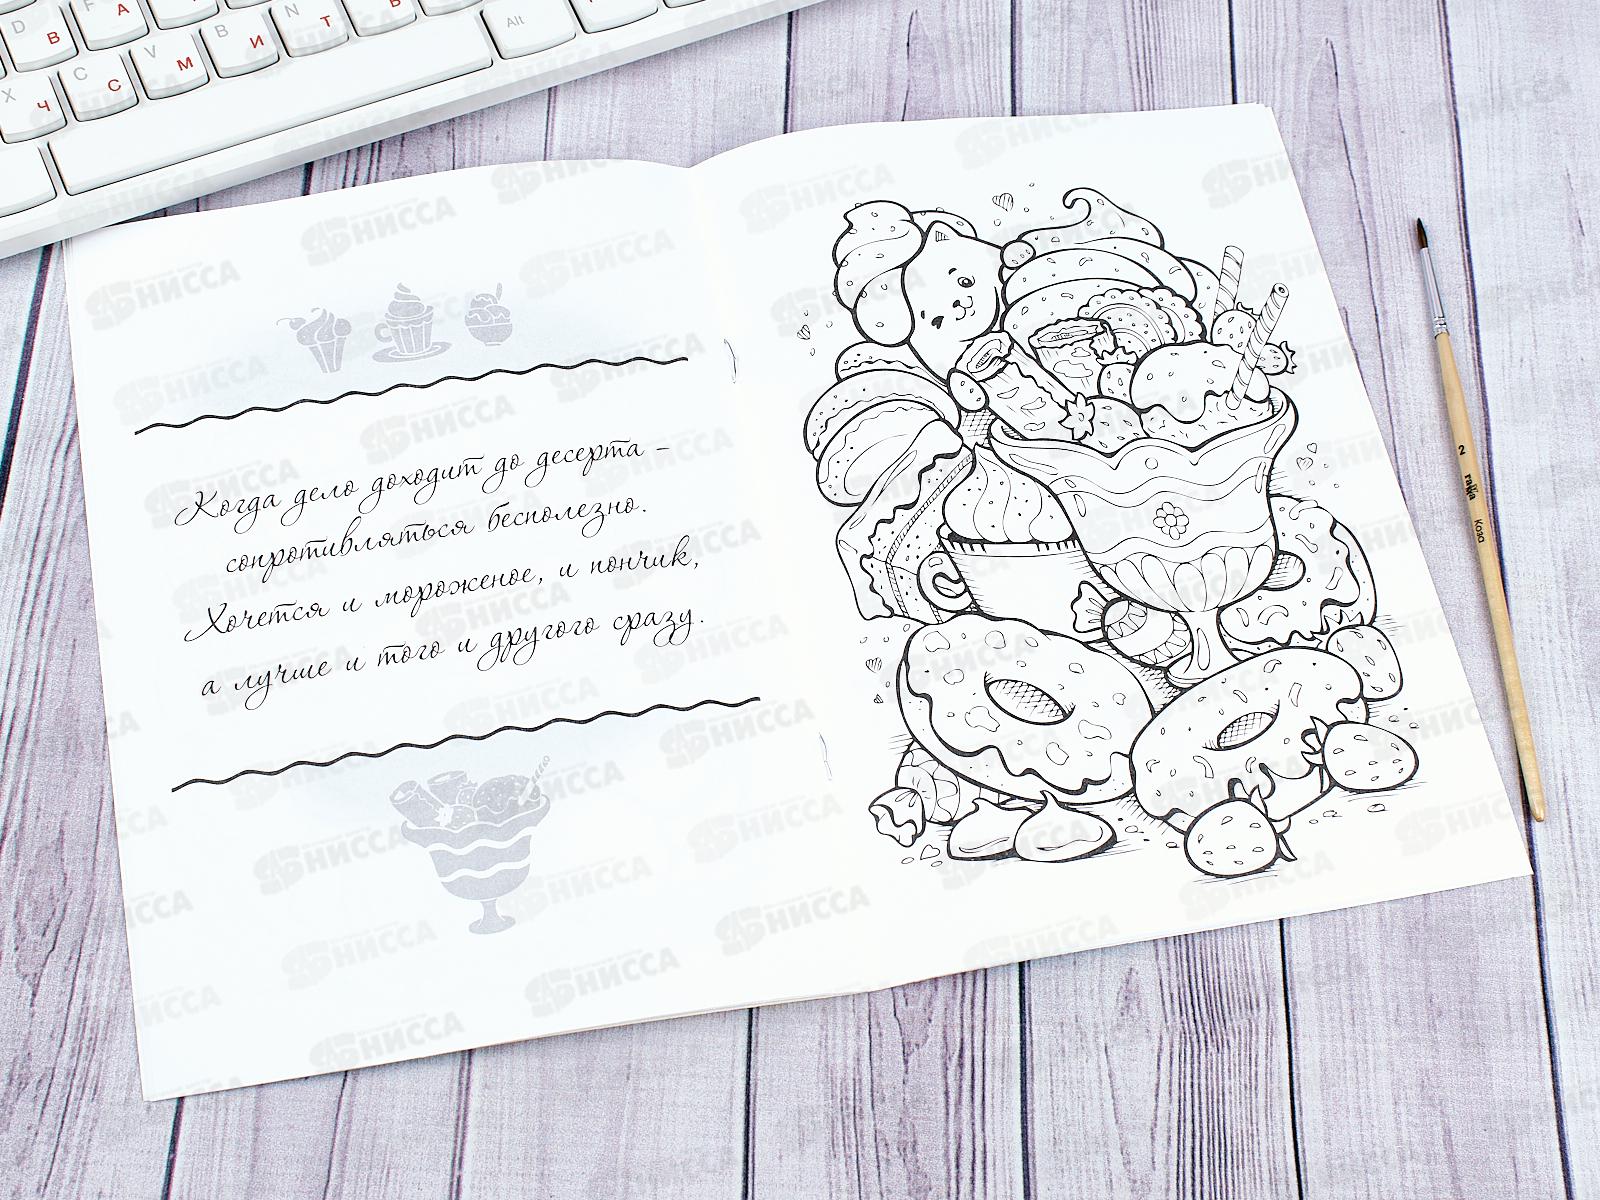 D F G V B N Alt
В А П Р И Т Ь
X C
Ч С М
Когда дело доходит до десерта –
сопротивляться бесполезно.
Хочется и мороженое, и пончик,
а лучше и того и другого сразу.
2 Коза
НИССА